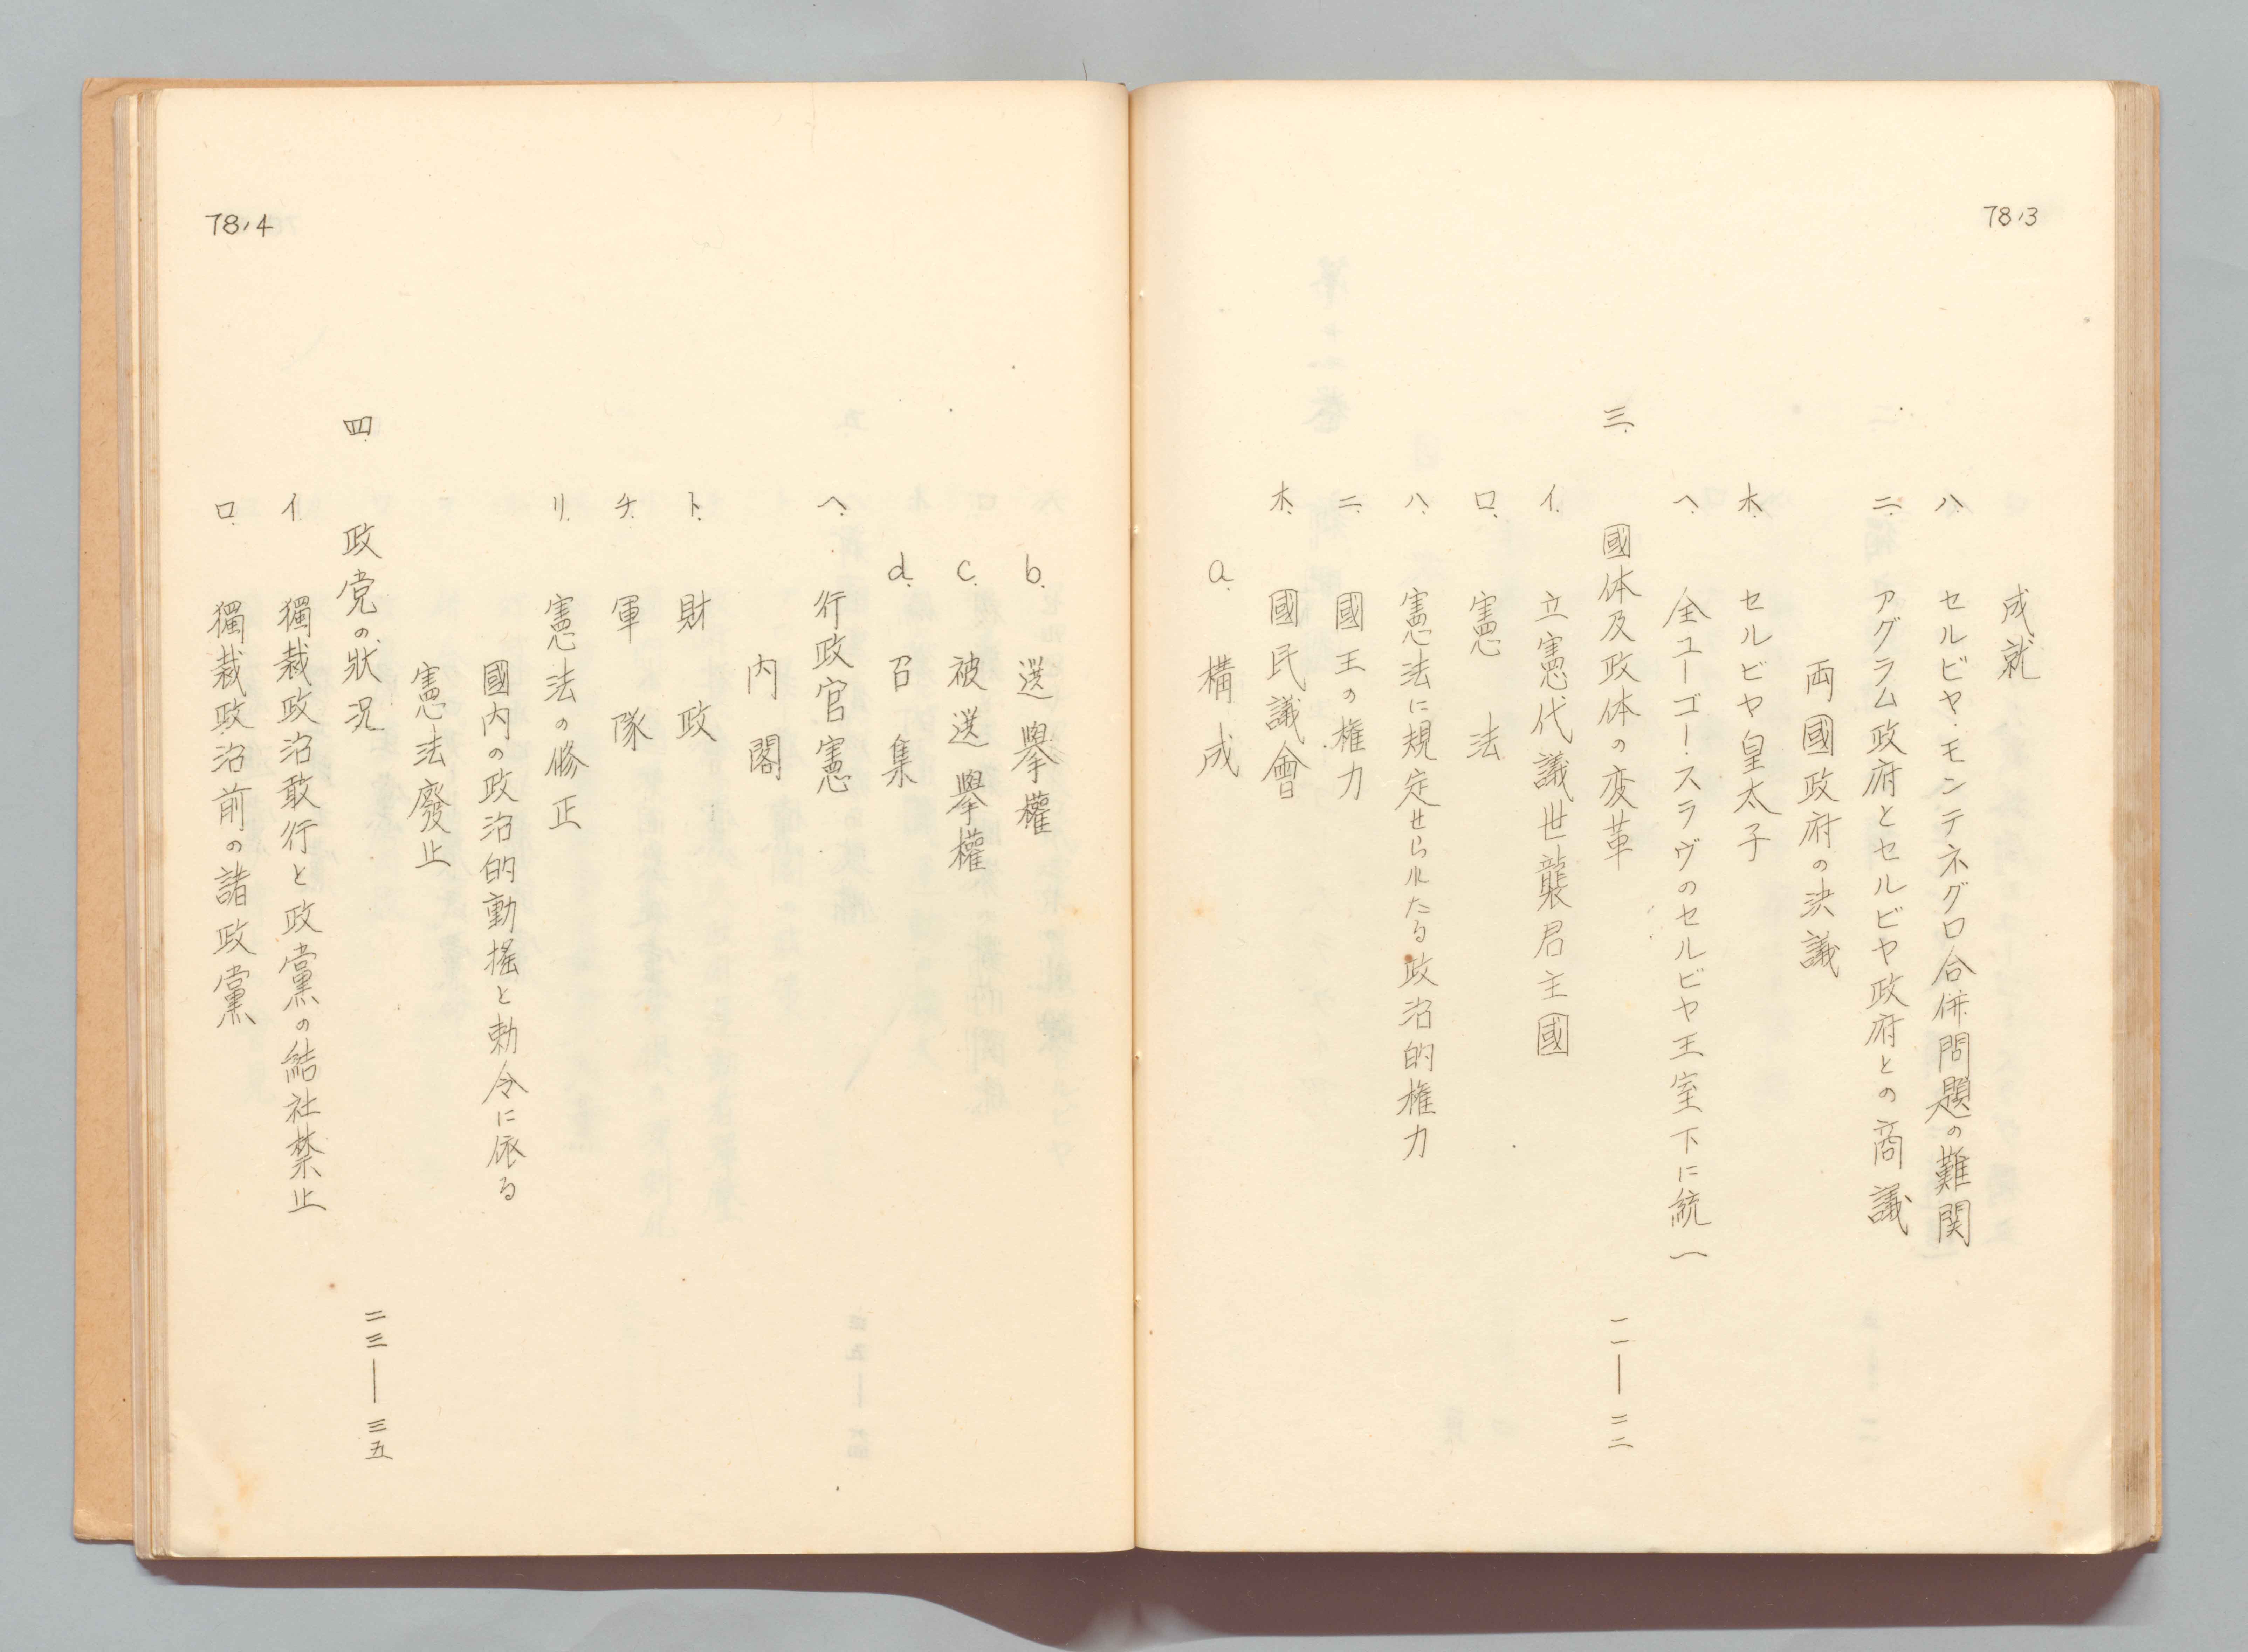 78,3
成就
ハ. セルビヤ・モンテネグロ合併問題の難関
ニ. アグラム政府とセルビヤ政府との商議
両國政府の決議
ホ. セルビヤ皇太子
ヘ. 全ユーゴースラヴのセルビヤ王室下に統一
三. 國体及政体の変革 一一―二二
イ. 立憲代議世襲君主國
ロ. 憲法
ハ. 憲法に規定せられたる政治的権力
ニ. 國王の権力
ホ. 國民議會
a. 構成
78,4
b. 選擧權
c. 被選擧權
d. 召集
ヘ. 行政官憲
内閣
ト. 財政
チ. 軍隊
リ. 憲法の修正
國内の政治的動搖と勅令に依る
憲法廢止
四. 政党の狀況 二三―三五
イ. 獨裁政治敢行と政黨の結社禁止
ロ. 獨裁政治前の諸政黨